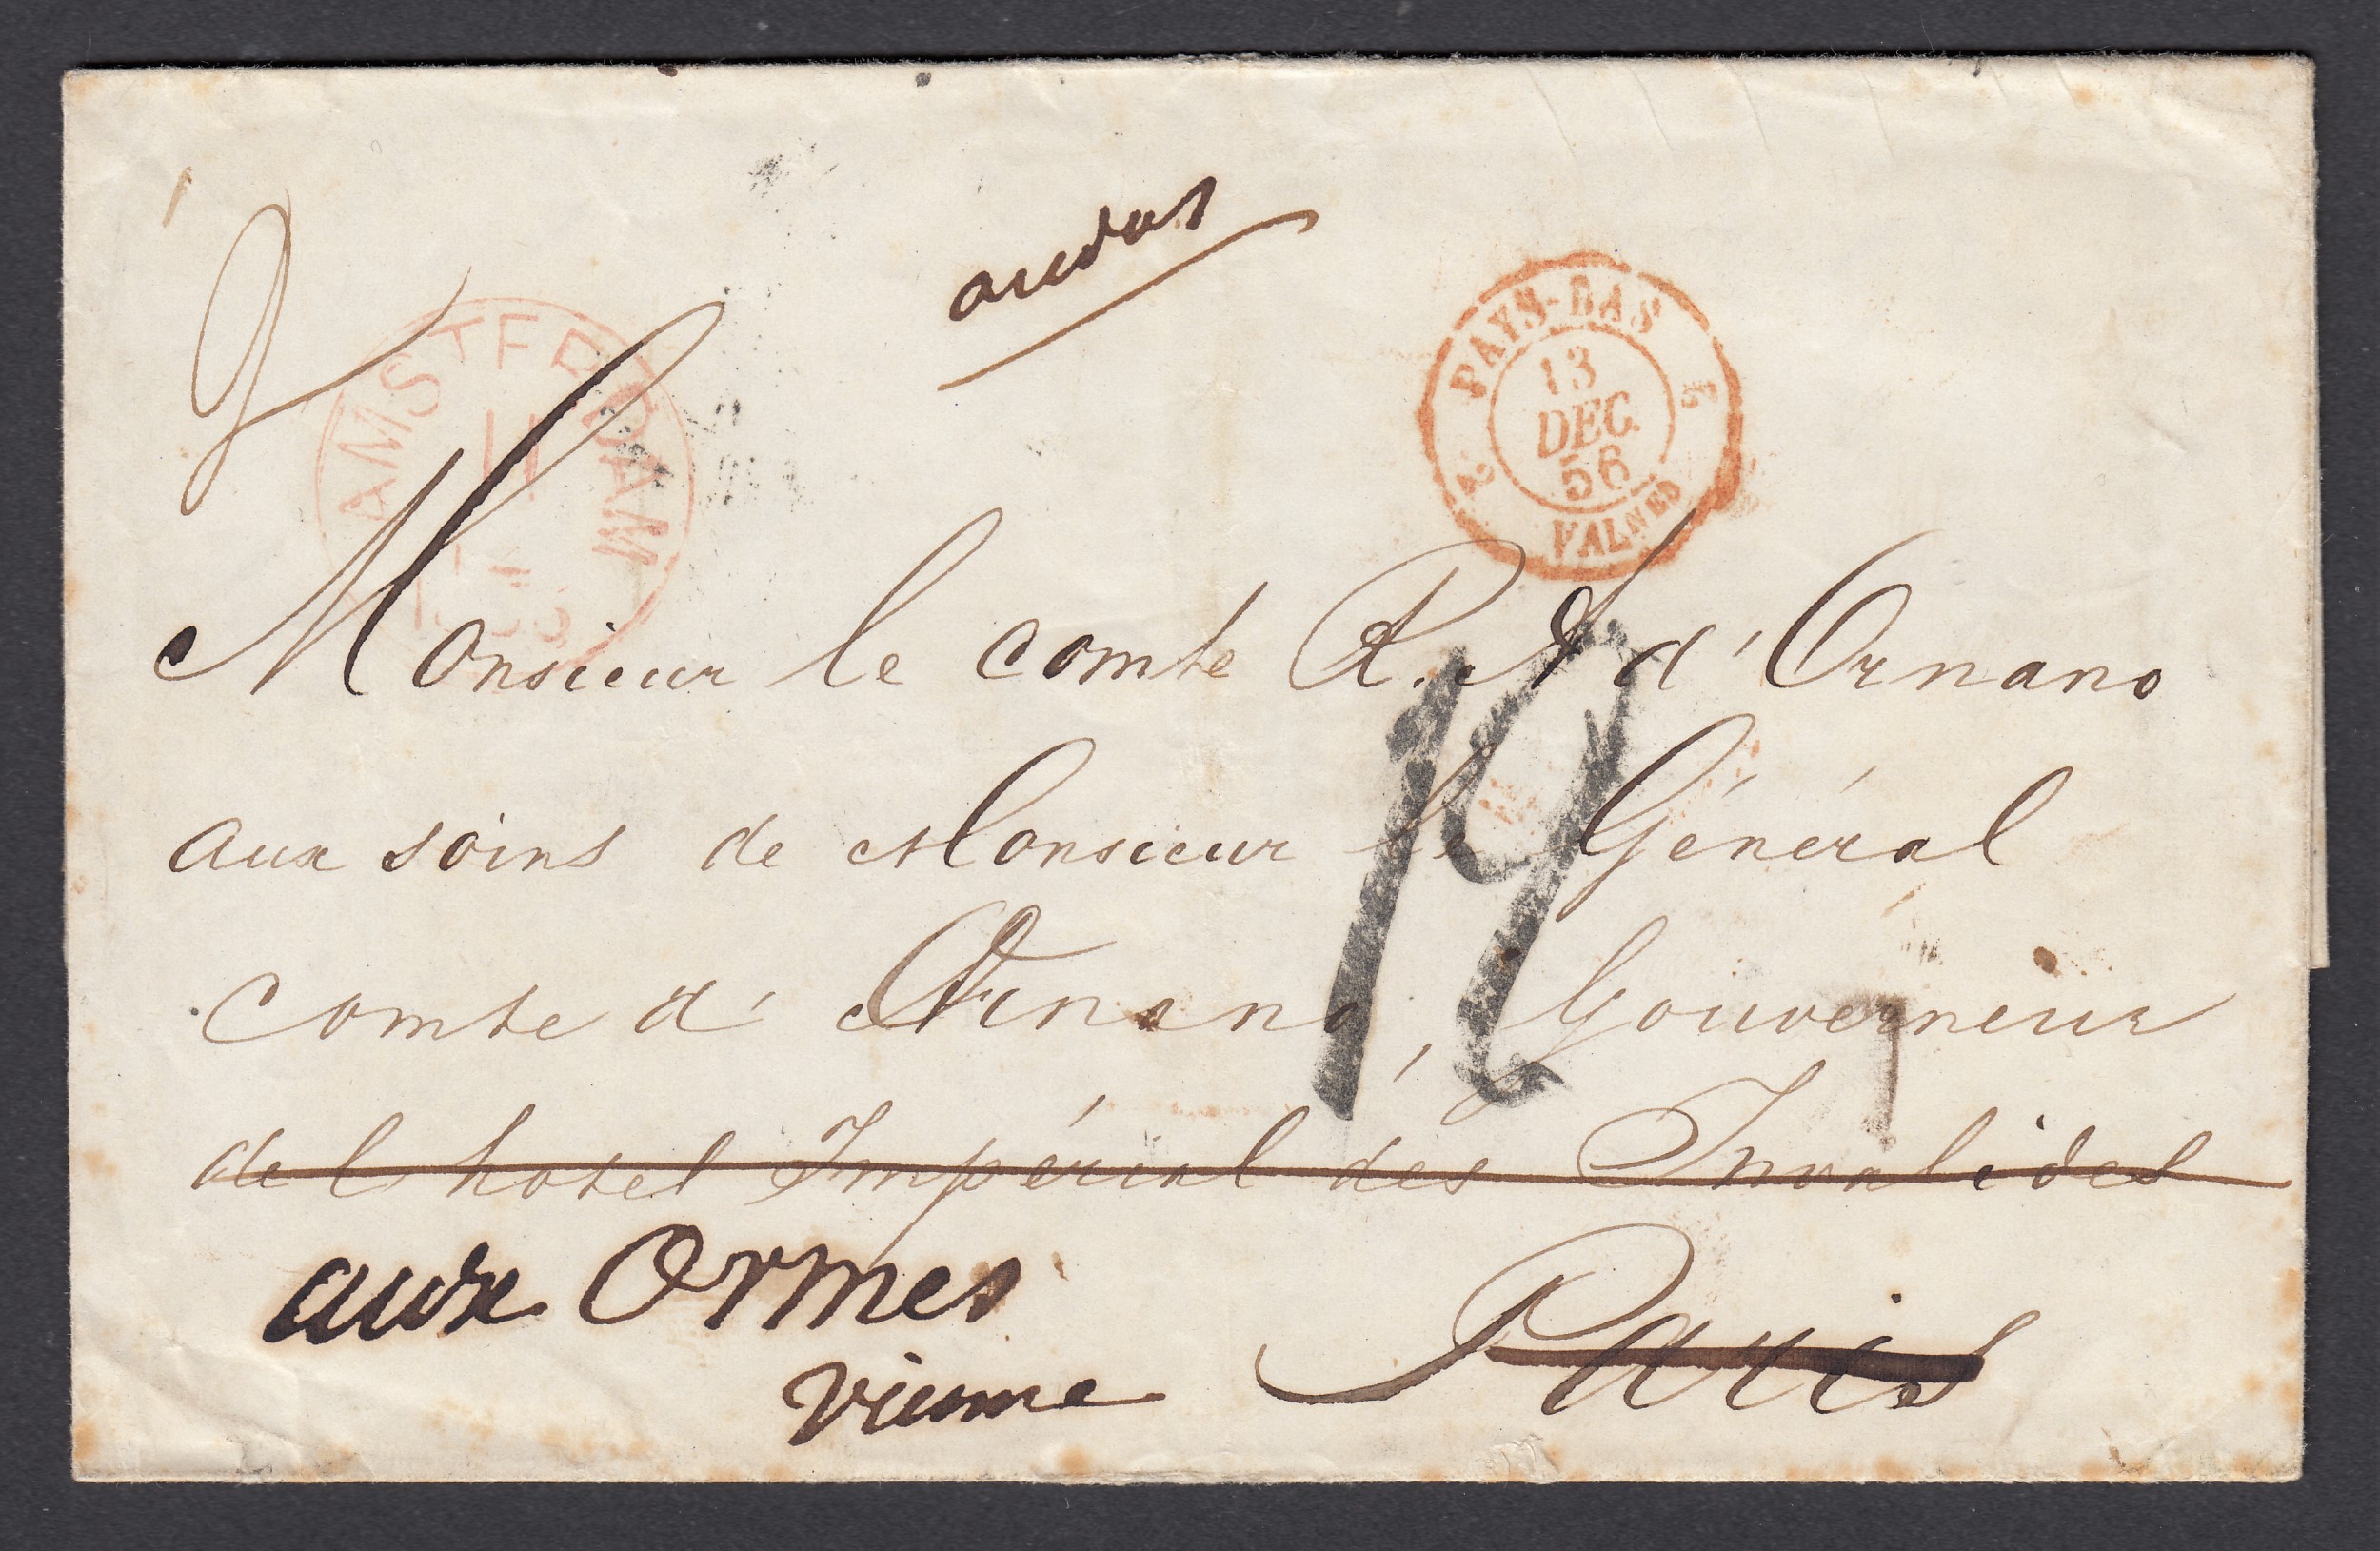 au dos
AMSTERDAM
11
PAYS-BAS
13
DEC.
56
2 2
VALNES
12
Monsieur le comte R. A. d'Ornano
aux soins de Monsieur le Général
comte d'Ornano, Gouverneur
de l'hotel Impérial des Invalides
aux Ormes
Paris
vienne